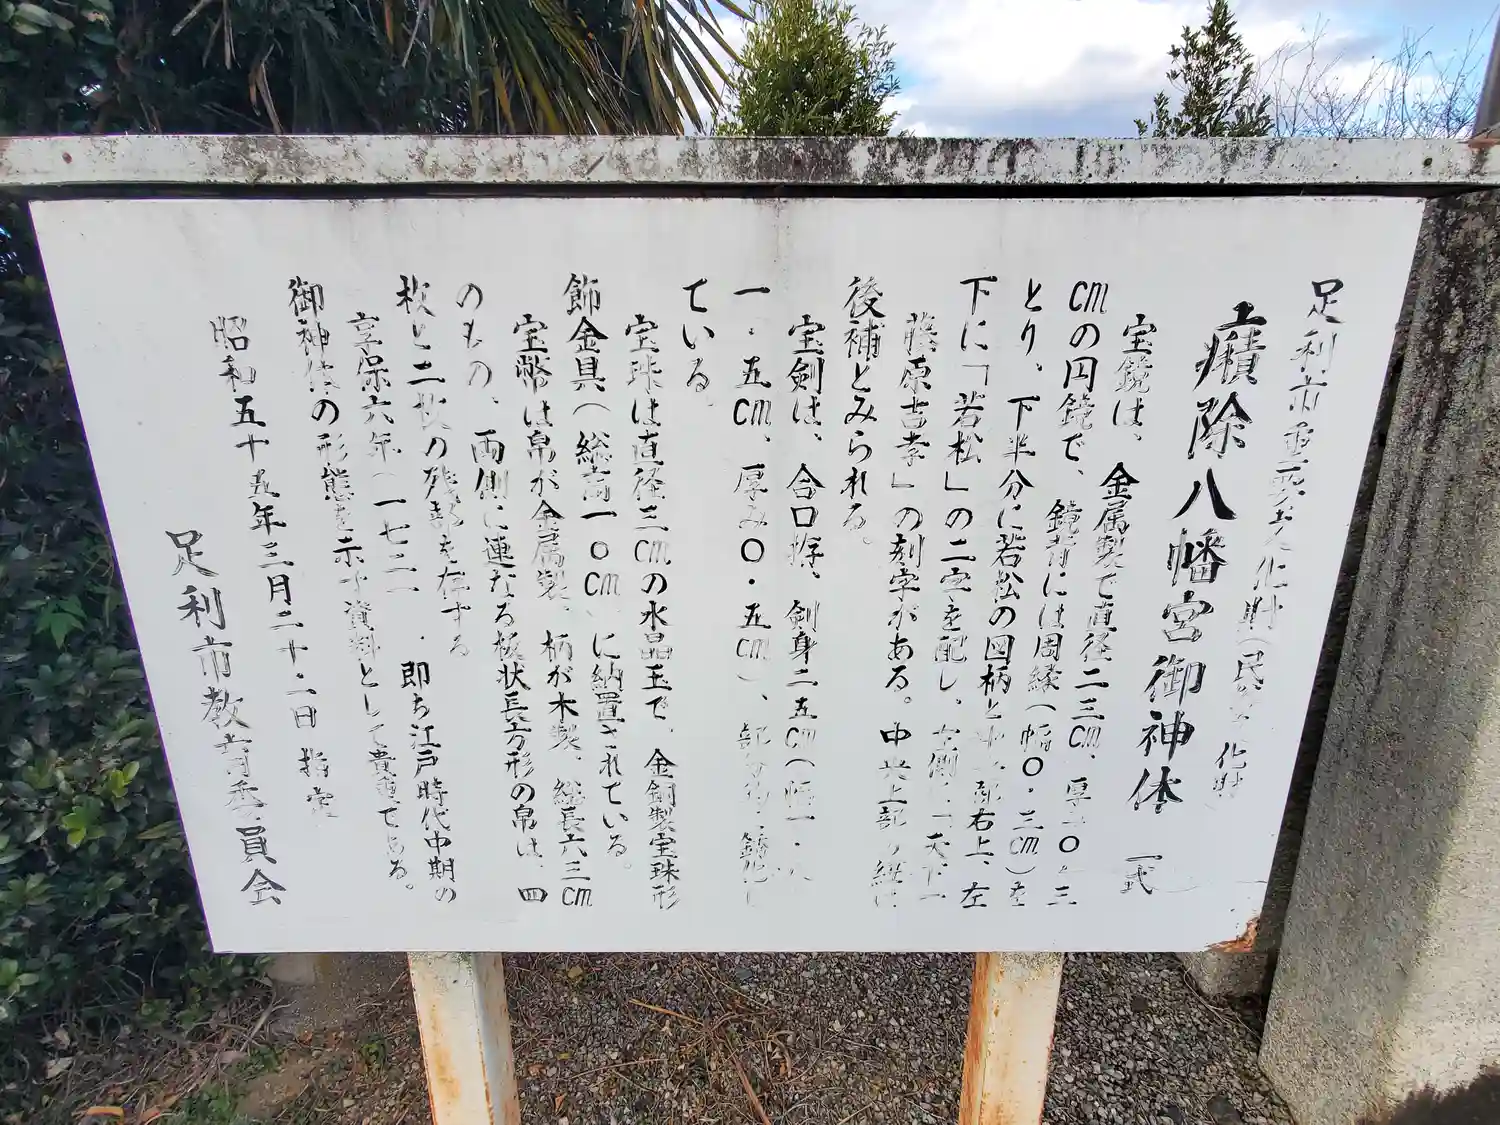 足利市重要文化財(民俗文化財)
癪除八幡宮御神体 一式
宝鏡は、金属製で直径二三cm、厚み〇・三
cmの円鏡で、鏡背には周縁(幅〇・三cm)を
とり、下半分に若松の図柄と中央部右上、左
下に「若松」の二字を配し、左側に「天下一
藤原吉孝」の刻字がある。中央上部の紐は
後補とみられる。
宝剣は、合口拵、剣身二五cm(幅一・八
一・五cm、厚み〇・五cm)、部分的に錆化し
ている。
宝珠は直径三cmの水晶玉で、金銅製宝珠形
飾金具(総高一〇cm)に納置されている。
宝幣は帛が金属製、柄が木製、総長六三cm
のもの、両側に連なる板状長方形の帛は、四
枚と二枚の残部を存する
享保六年(一七二一 即ち江戸時代中期の
御神体の形態を示す資料として貴重である。
昭和五十五年三月二十二日 指定
足利市教育委員会